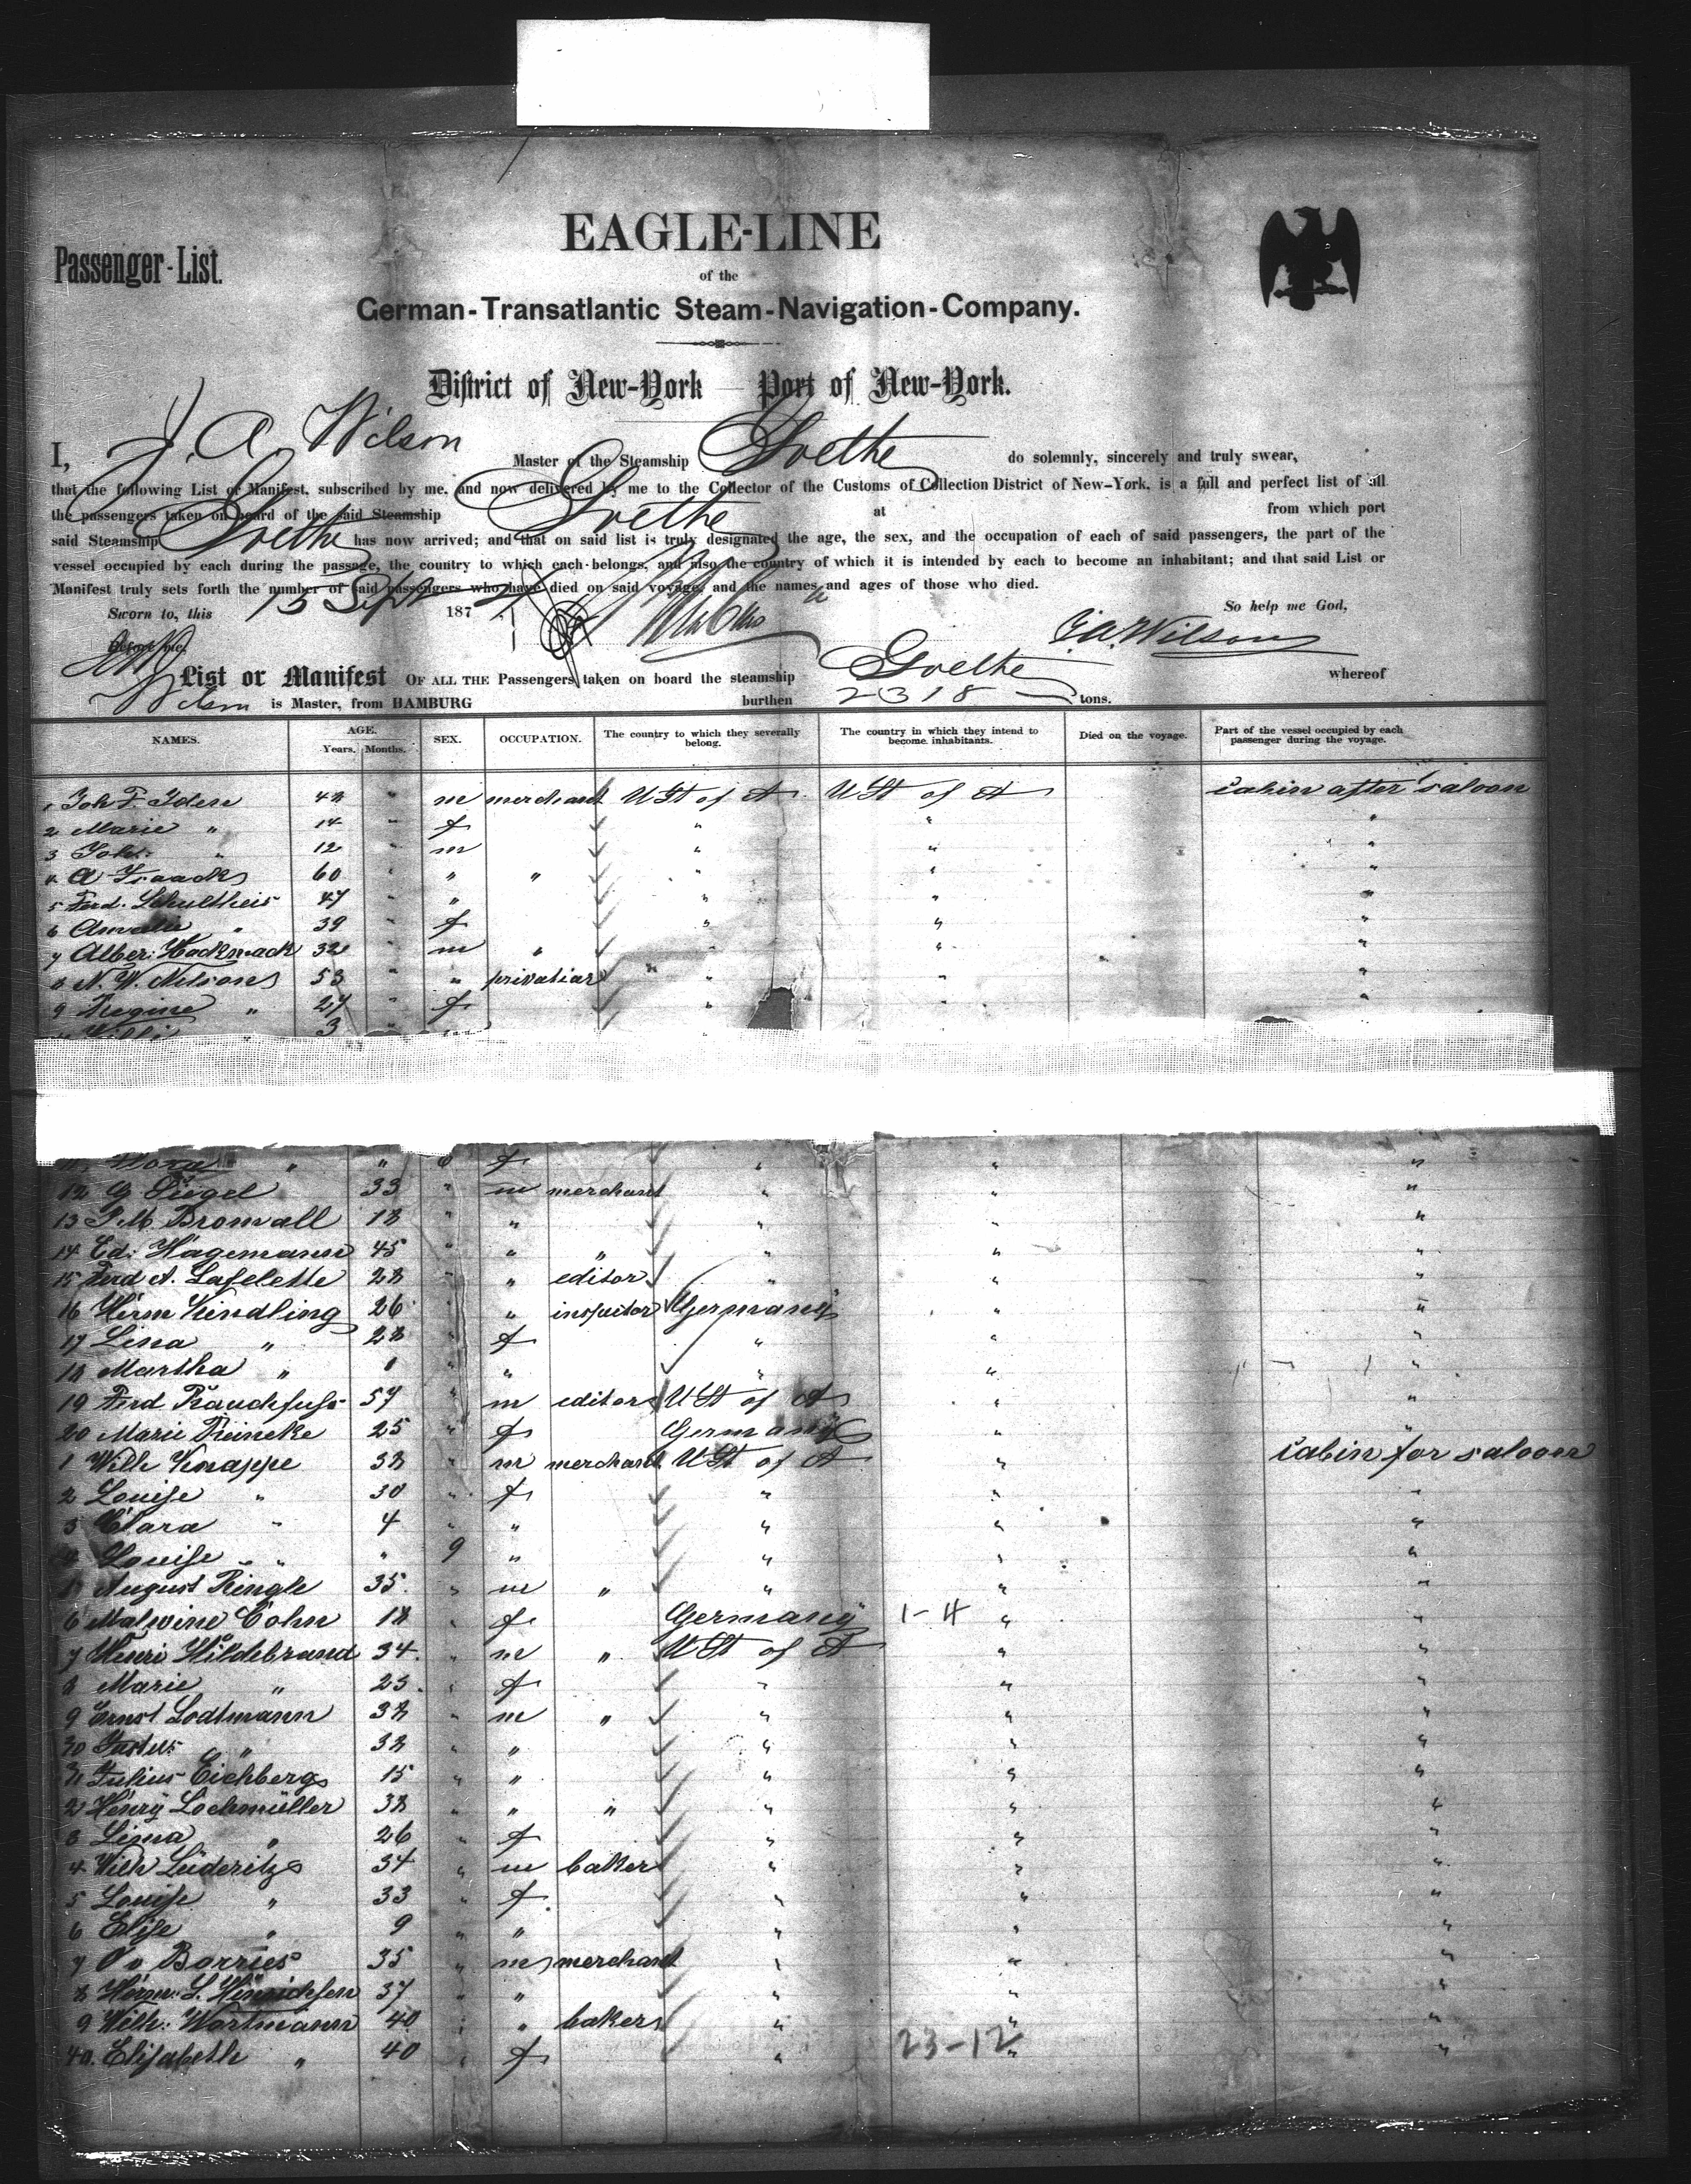 Passenger-List.
EAGLE-LINE
of the
German-Transatlantic Steam-Navigation-Company.
District of New-York — Port of New-York.
I, J. A. Wilson Master of the Steamship Goethe do solemnly, sincerely and truly swear,
that the following List or Manifest, subscribed by me, and now delivered by me to the Collector of the Customs of Collection District of New-York, is a full and perfect list of all
the passengers taken on board of the said Steamship Goethe at from which port
said Steamship Goethe has now arrived; and that on said list is truly designated the age, the sex, and the occupation of each of said passengers, the part of the
vessel occupied by each during the passage, the country to which each belongs, and also the country of which it is intended by each to become an inhabitant; and that said List or
Manifest truly sets forth the number of said passengers who have died on said voyage, and the names and ages of those who died.
Sworn to, this 15 Sept 187 So help me God,
before me. J. A. Wilson
List or Manifest OF ALL THE Passengers taken on board the steamship Goethe whereof
Wilson is Master, from HAMBURG burthen 2318 tons.
NAMES. AGE. Years. Months. SEX. OCCUPATION. The country to which they severally belong. The country in which they intend to become inhabitants. Died on the voyage. Part of the vessel occupied by each passenger during the voyage.
1 Joh F. Iden 42 " m merchant U St of A U St of A cabin after saloon
2 Marie " 14 " f " " "
3 Joh: " 12 " m " " "
4 A Isaacks 60 " " " " " "
5 Ferd. Schultheis 47 " " " " "
6 Amalie " 39 " f " " "
7 Alber: Hackmack 32 " m " " " "
8 N. W. Nelson 53 " " privatiar " " "
9 Regine " 27 " f " " "
Willi 3 " m
11 " " f " " "
12 G Siegel 33 " m merchant " " "
13 P. M. Bromall 18 " " " " "
14 Ed: Hagemann 45 " " " " " "
15 Ferd A. Lafelette 28 " " editor " " "
16 Herm Kindling 26 " " inspector Germany " "
17 Lina " 28 " f " " "
18 Martha " " " " " "
19 Ferd Rauchfuss 57 " m editor U St of A " "
20 Marie Reineke 25 " f Germany " "
1 Wilh Knappe 38 " m merchant U St of A " cabin for saloon
2 Louise " 30 " f " " "
3 Clara " 4 " " " " "
4 Louise " " 9 " " " "
5 August Ringle 35 " m " " " "
6 Malwine Cohn 18 " f Germany 1-4 " "
7 Henri Hildebrand 34 " m " U St of A " "
8 Marie " 23 " f " " "
9 Ernst Lodtmann 38 " m " " " "
30 " 38 " " " " "
31 Julius Eichberg 15 " " " " "
2 Henry Lochmüller 38 " " " " " "
3 Lina " 26 " f " " "
4 Wilh Lüderitz 34 " m baker " " "
5 Louise " 33 " f " " "
6 Elise " 9 " " " " "
7 O v Borries 35 " m merchant " " "
8 Herm: L. Hinrichsen 37 " " " " "
9 Wilh: Wortmann 40 " " baker " " "
40. Elisabeth " 40 " f " 23-12 " "